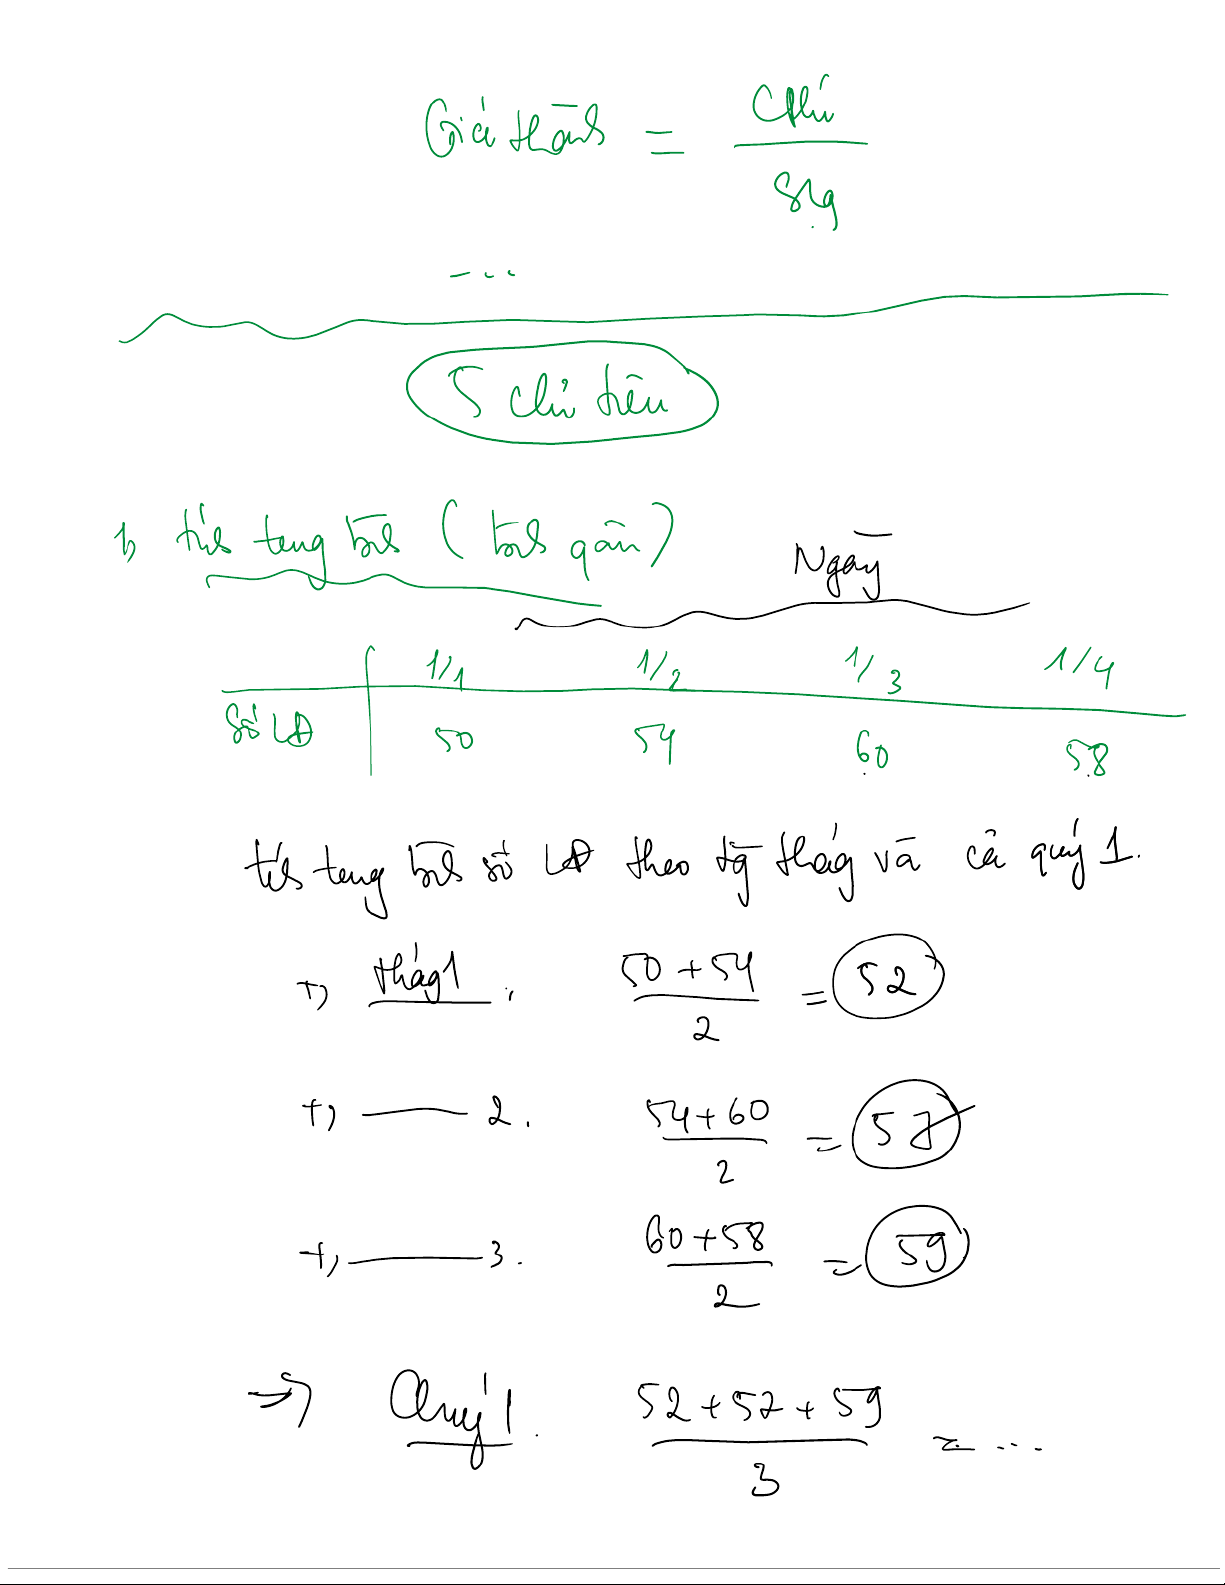 Giá thành = CPhí / SLg
...
5 chỉ tiêu
1, tính trung bình (bình quân)
Ngày
1/1 1/2 1/3 1/4
Số LĐ 50 54 60 58
tính trung bình số LĐ theo từng tháng và cả quý 1.
+, tháng 1. (50+54)/2 = 52
+, —— 2. (54+60)/2 = 57
+, —— 3. (60+58)/2 = 59
=> Quý 1. (52+57+59)/3 = ...